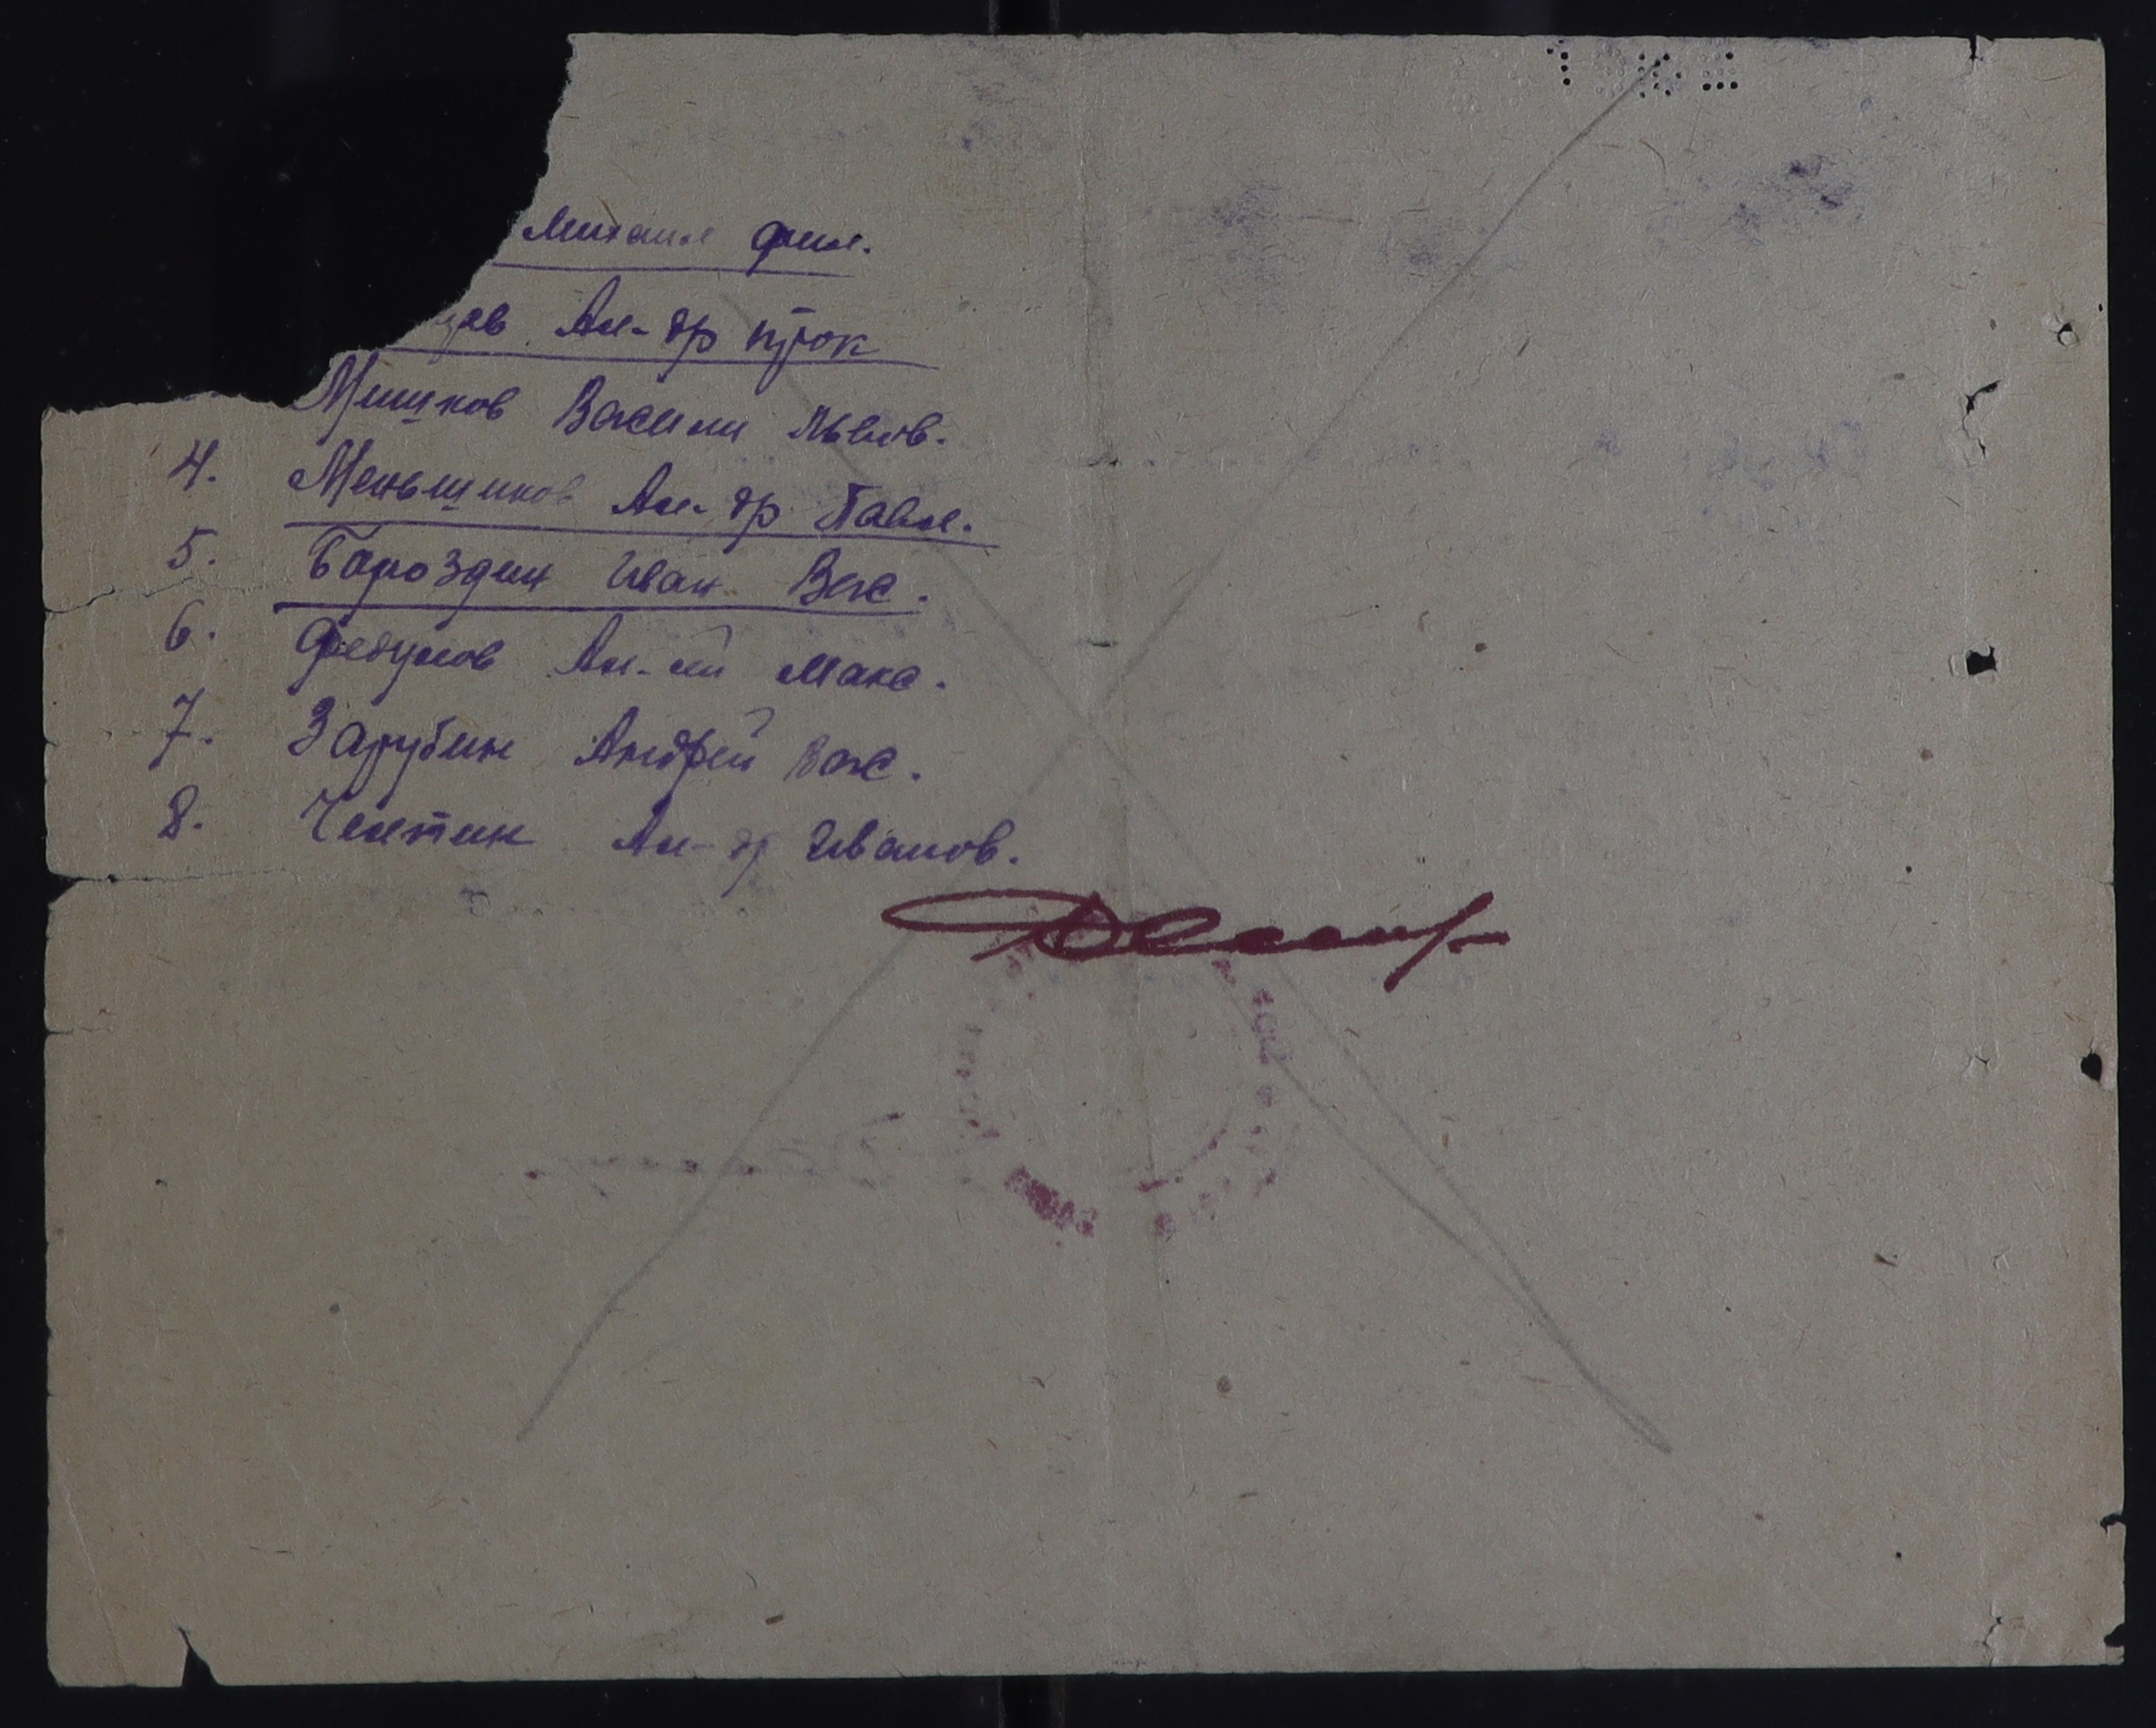 Михаил Фил.
цев Ал-др Прок
Мешков Васили Львов.
4. Меньщиков Ал-др Павл.
5. Бороздин Иван Вас.
6. Федулов Ал-ей Макс.
7. Зарубин Андрей Вас.
8. Чептин Ал-др Иванов.